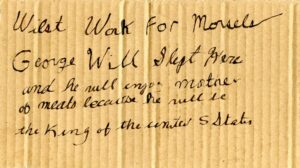 Wilst Work For Morsels
George Will Slept Here
and he will enjoy
of meats because he will be
the King of the united States